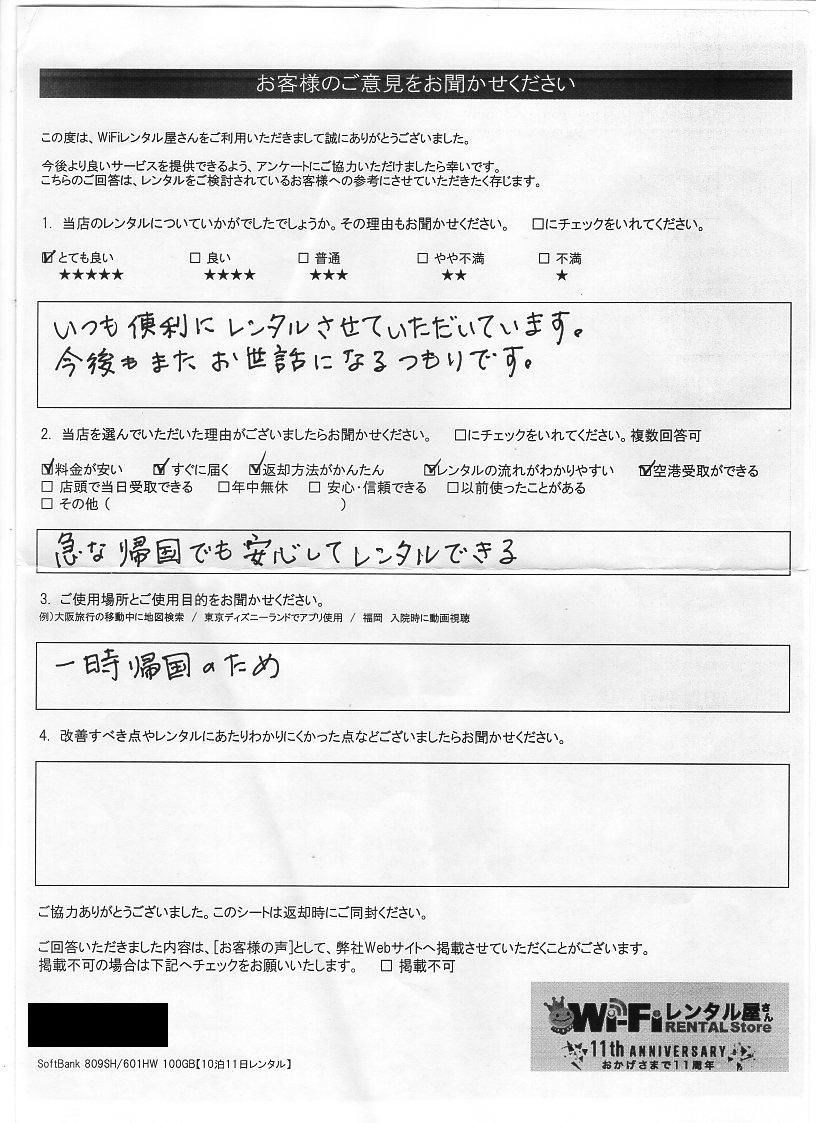 お客様のご意見をお聞かせください
この度は、WiFiレンタル屋さんをご利用いただきまして誠にありがとうございました。
今後より良いサービスを提供できるよう、アンケートにご協力いただけましたら幸いです。
こちらのご回答は、レンタルをご検討されているお客様への参考にさせていただきたく存じます。
1. 当店のレンタルについていかがでしたでしょうか。その理由もお聞かせください。 □にチェックをいれてください。
☑とても良い □ 良い □ 普通 □ やや不満 □ 不満
★★★★★ ★★★★ ★★★ ★★ ★
いつも便利にレンタルさせていただいています。
今後もまたお世話になるつもりです。
2. 当店を選んでいただいた理由がございましたらお聞かせください。 □にチェックをいれてください。複数回答可
☑料金が安い ☑すぐに届く ☑返却方法がかんたん ☑レンタルの流れがわかりやすい ☑空港受取ができる
□ 店頭で当日受取できる □年中無休 □ 安心・信頼できる □以前使ったことがある
□ その他 ( )
急な帰国でも安心してレンタルできる
3. ご使用場所とご使用目的をお聞かせください。
例)大阪旅行の移動中に地図検索 / 東京ディズニーランドでアプリ使用 / 福岡 入院時に動画視聴
一時帰国のため
4. 改善すべき点やレンタルにあたりわかりにくかった点などございましたらお聞かせください。
ご協力ありがとうございました。このシートは返却時にご同封ください。
ご回答いただきました内容は、[お客様の声]として、弊社Webサイトへ掲載させていただくことがございます。
掲載不可の場合は下記へチェックをお願いいたします。 □ 掲載不可
Wi-Fiレンタル屋さん
RENTAL Store
11th ANNIVERSARY
おかげさまで11周年
SoftBank 809SH/601HW 100GB【10泊11日レンタル】